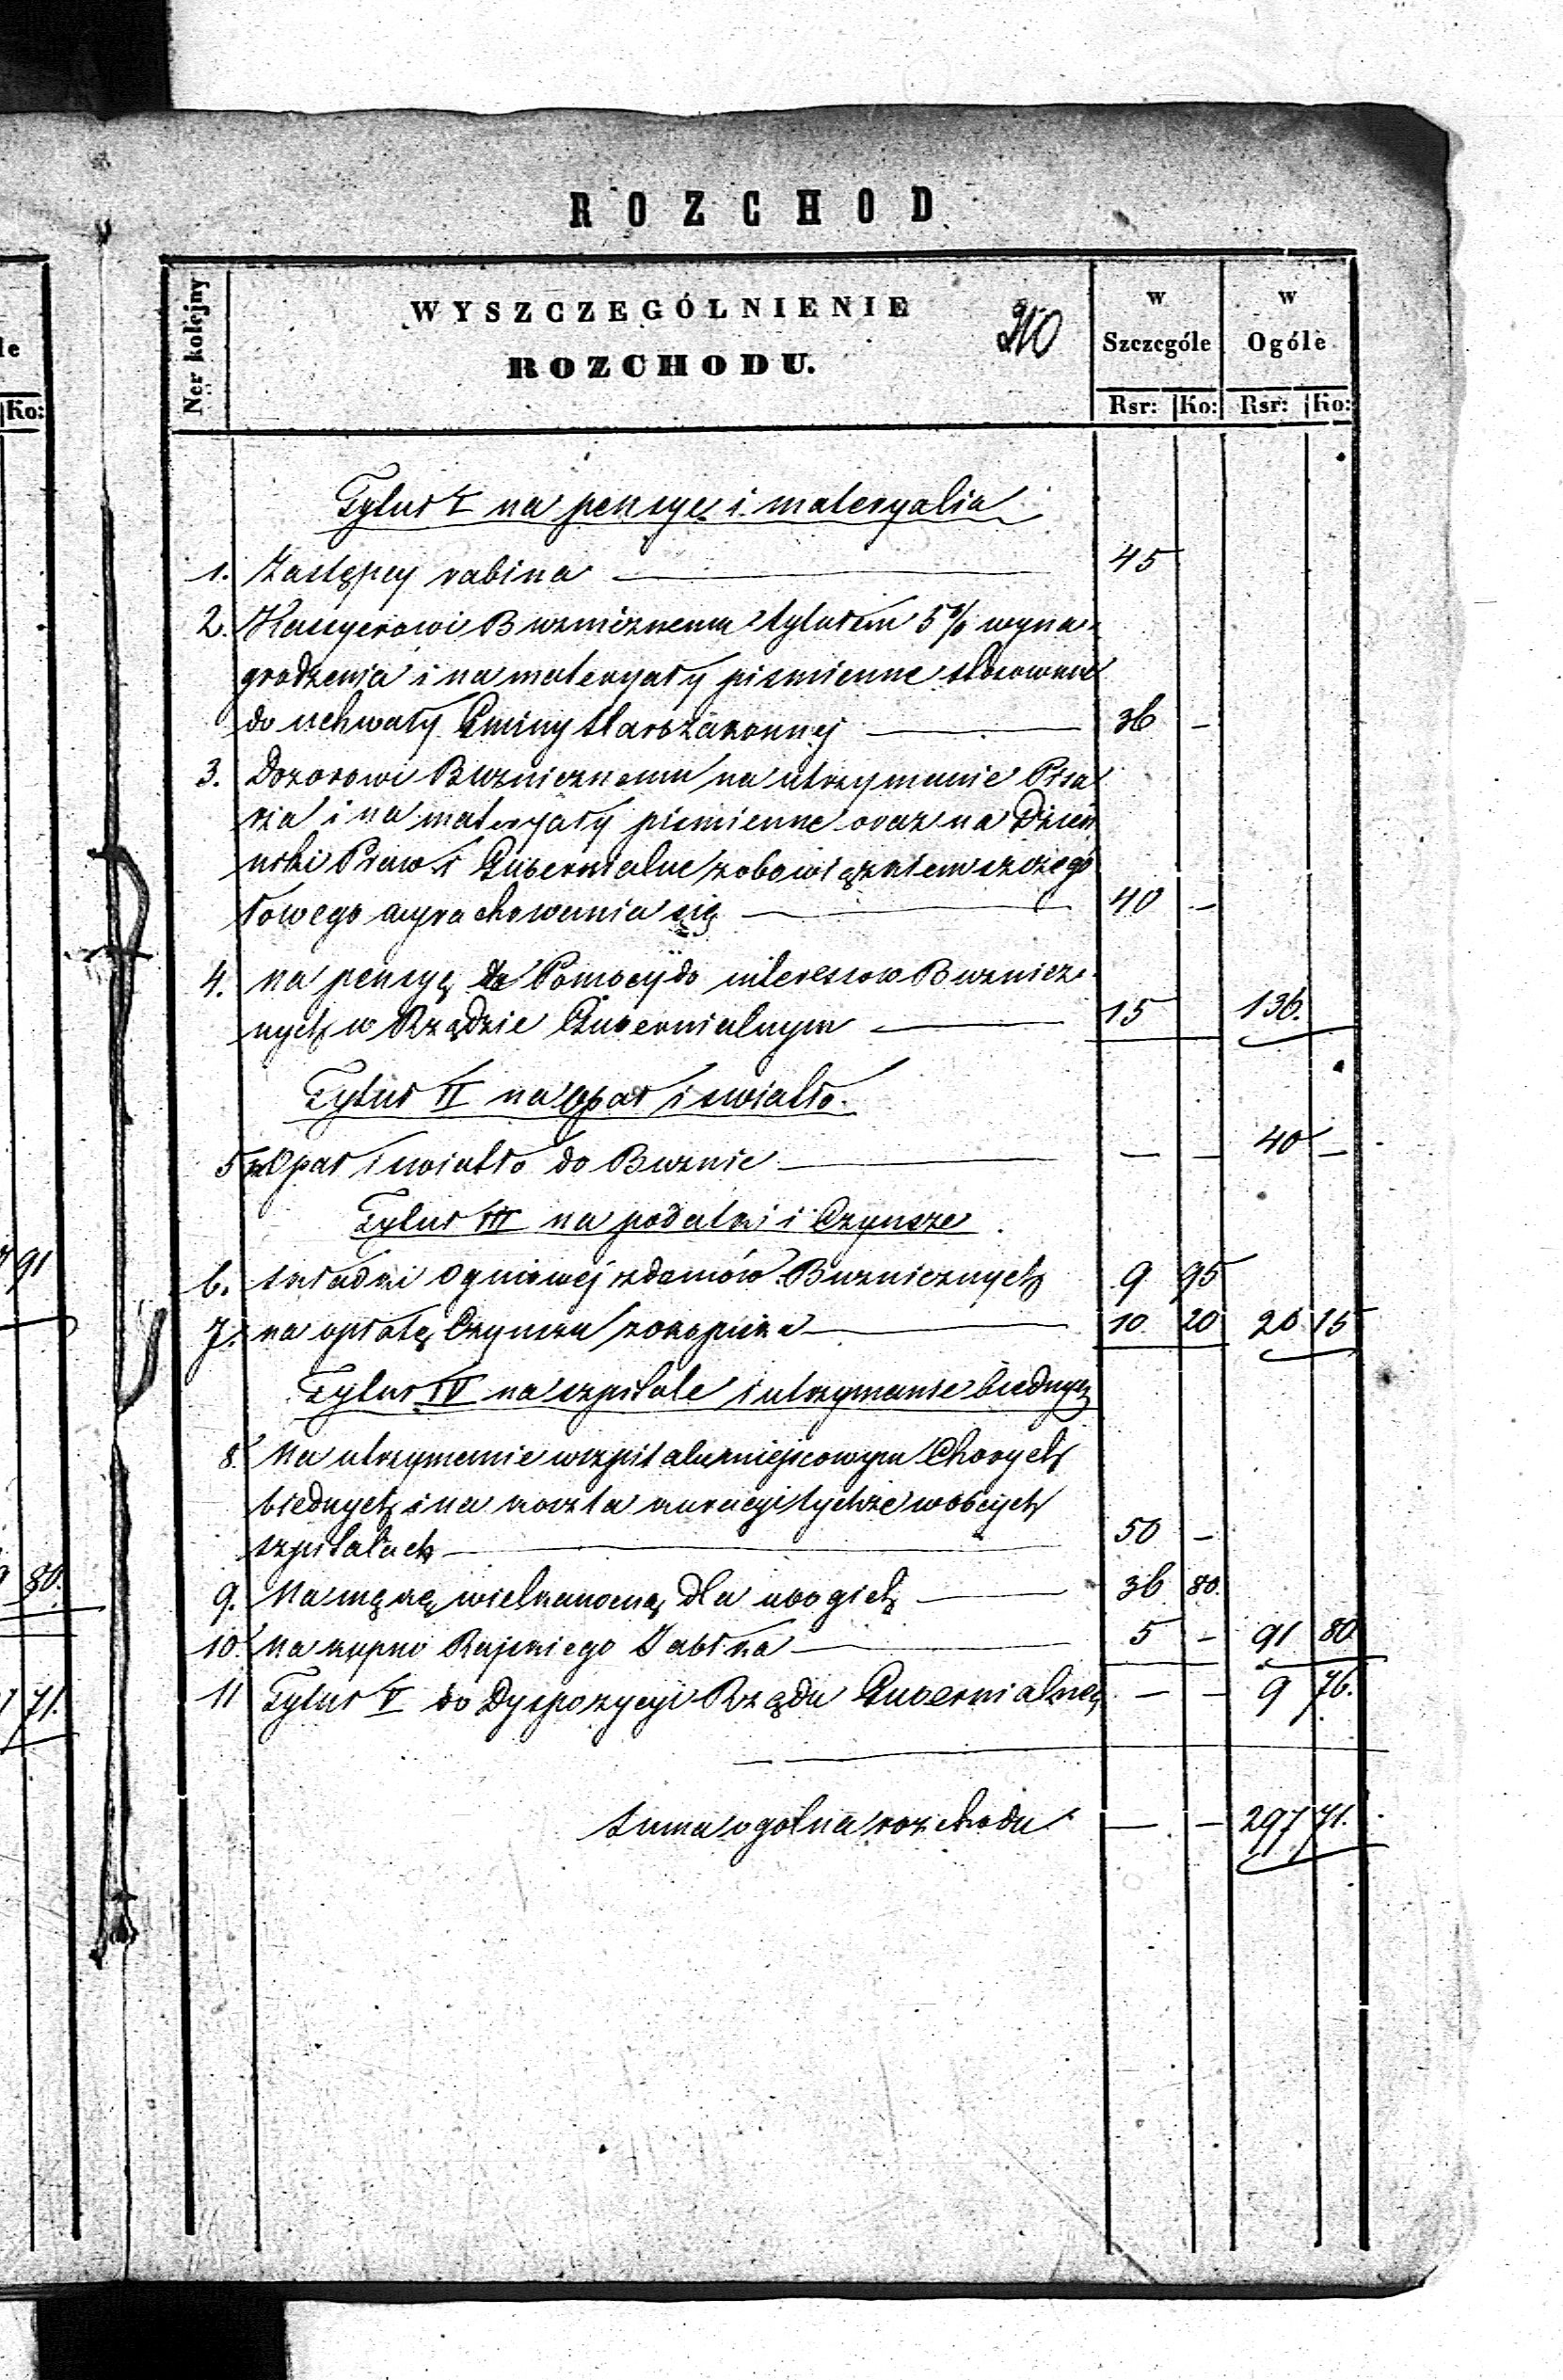 le
Ko:
91
80.
71.
ROZCHOD
Ner kolejny
WYSZCZEGÓLNIENIE
ROZCHODU.
w Szczególe
w Ogóle
Rsr: Ko: Rsr: Ko:
Tytuł I na pensye i materyalia
1. Zastępcy rabina — 45
2. Kassyerowi Bużnicznemu tytułem 5% wyna-
grodzenia i na materyały piśmienne stosownie
do uchwały Gminy starozakonnej — 36 —
3. Dozorowi Bużnicznemu na utrzymanie Pisa
rza i na materyały piśmienne oraz na Dzien
niki Praw i Gubernialne zobowiązkiem szczegó
łowego wyrachowania się — 40 —
4. na pensyę do Pomocy do interessow Bużnicz-
nych w Rządzie Gubernialnym — 15 136.
Tytuł II na opał i swiatło.
5 na Opał i swiatło do Bużnic — — — 40 —
Tytuł III na podatki i Czynsze
6. Składki Ogniowej z domów Bużnicznych 9 95
7. na opłatę Czynszu z okopiska — 10 20 20 15
Tytuł IV na szpitale i utrzymanie biednych
8. Na utrzymanie w szpitalu miejscowym Chorych
biednych i na koszta kuracyi tychże w obcych
szpitalach — 50 —
9. Na mąkę wielkanocną dla ubogich — 36 80.
10. na kupno Rajskiego Jabłka — 5 — 91 80
11 Tytuł V do Dyspozycyi Rządu Gubernialneg — — 9 76.
Suma ogólna rozchodu — — 297 71.